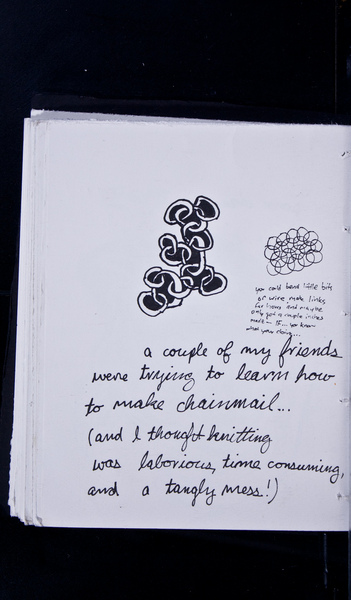 you could bend little bits
of wire, make links
for hours and maybe
only get a couple inches
made — IF... you know
what your doing...
a couple of my friends
were trying to learn how
to make chainmail...
(and I thought knitting
was laborious, time consuming,
and a tangly mess!)